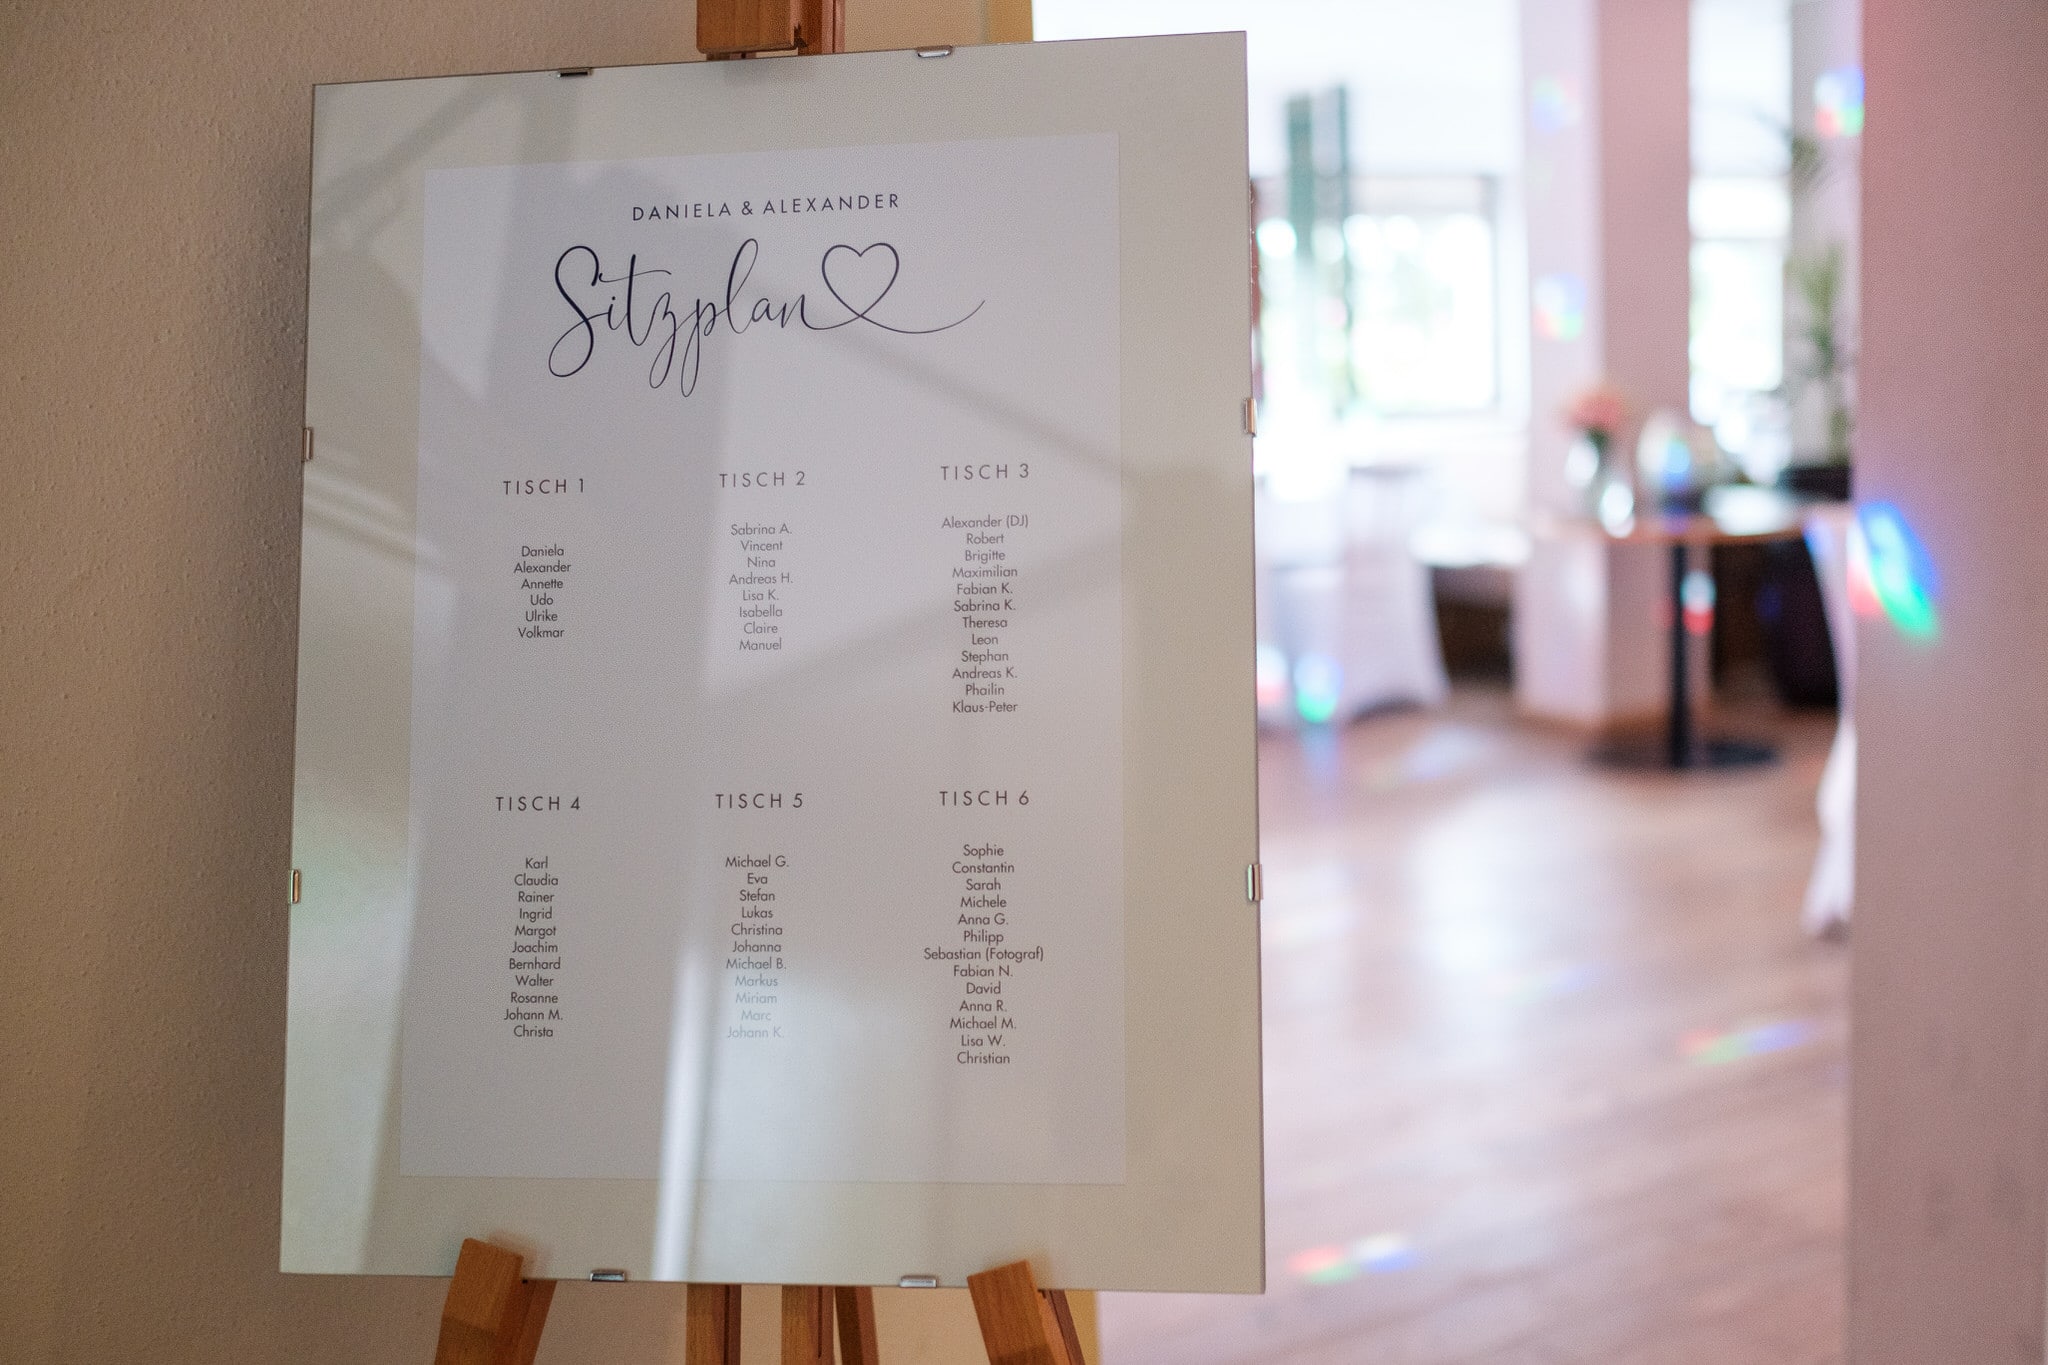 DANIELA & ALEXANDER
Sitzplan
TISCH 1
Daniela
Alexander
Annette
Udo
Ulrike
Volkmar
TISCH 2
Sabrina A.
Vincent
Nina
Andreas H.
Lisa K.
Isabella
Claire
Manuel
TISCH 3
Alexander (DJ)
Robert
Brigitte
Maximilian
Fabian K.
Sabrina K.
Theresa
Leon
Stephan
Andreas K.
Phailin
Klaus-Peter
TISCH 4
Karl
Claudia
Rainer
Ingrid
Margot
Joachim
Bernhard
Walter
Rosanne
Johann M.
Christa
TISCH 5
Michael G.
Eva
Stefan
Lukas
Christina
Johanna
Michael B.
Markus
Miriam
Marc
Johann K.
TISCH 6
Sophie
Constantin
Sarah
Michele
Anna G.
Philipp
Sebastian (Fotograf)
Fabian N.
David
Anna R.
Michael M.
Lisa W.
Christian